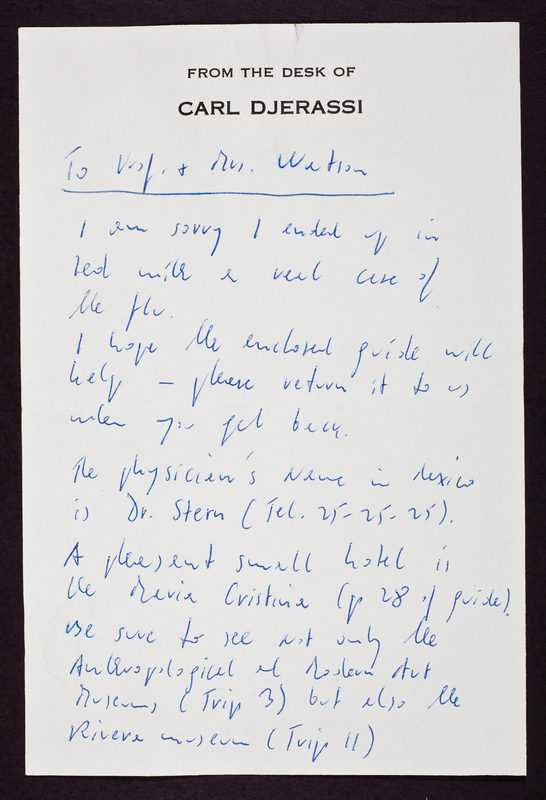 FROM THE DESK OF
CARL DJERASSI
To Prof. + Mrs. Watson
I am sorry I ended up in
bed with a real case of
the flu.
I hope the enclosed guide will
help – please return it to us
when you get back.
The physician's name in Mexico
is Dr. Stern (Tel. 25-25-25).
A pleasant small hotel is
the Maria Cristina (p 28 of guide).
Be sure to see not only the
Anthropological et Modern Art
Museums (Trip 3) but also the
Rivera museum (Trip 11)